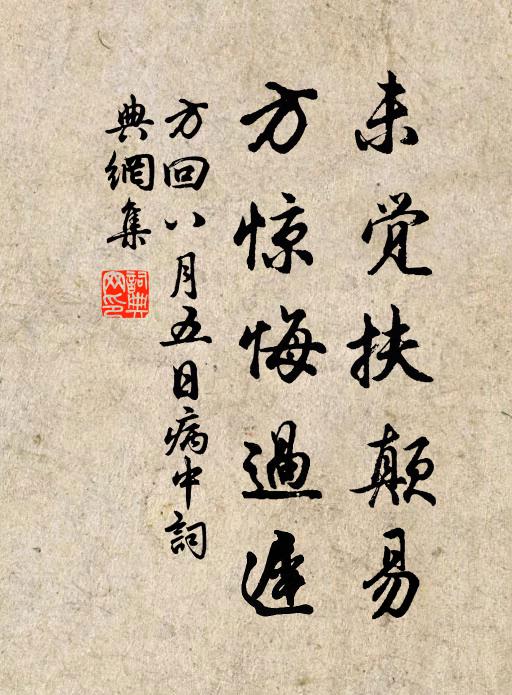 未觉扶颠易
方惊悔過遲
方回八月五日病中詞
典網集
詞典网印